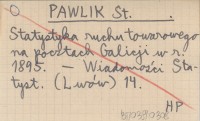 PAWLIK St. .
Statystyka ruchu towarowego
na pocztach Galicji w r.
1895. — Wiadomości Sta-
tyst. (Lwów) 14.
HP